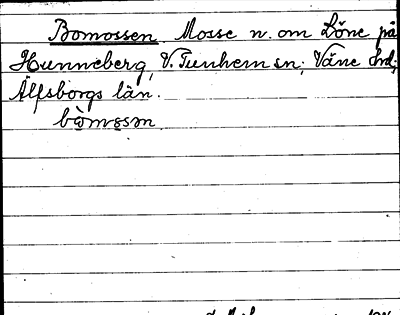 Bomossen Mosse n. om Löne på
Hunneberg, V. Tunhem sn; Väne hd;
Älfsborgs län.
bo̱mosən